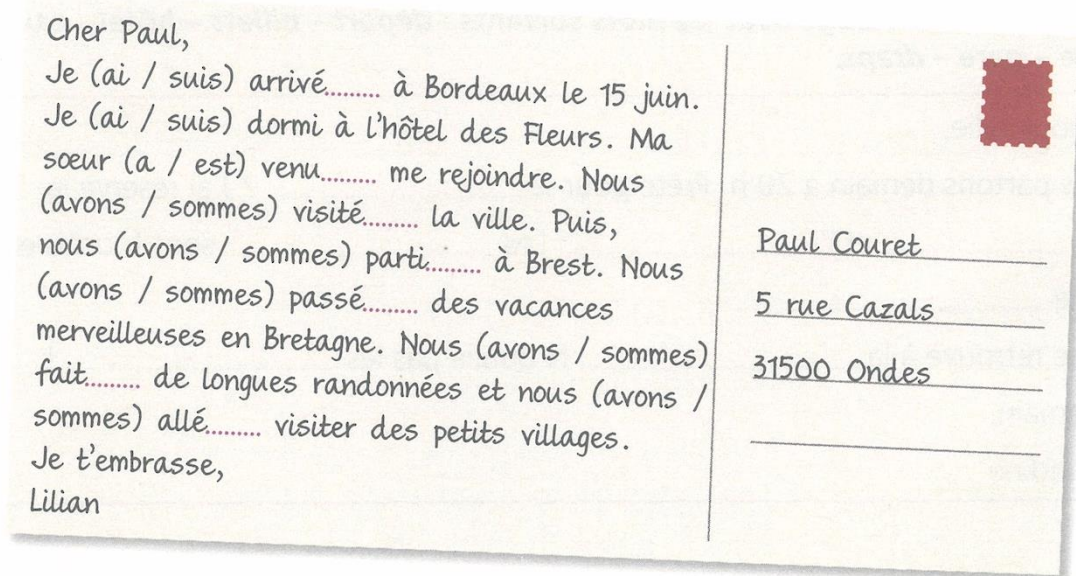 Cher Paul,
Je (ai / suis) arrivé......... à Bordeaux le 15 juin.
Je (ai / suis) dormi à l'hôtel des Fleurs. Ma
sœur (a / est) venu......... me rejoindre. Nous
(avons / sommes) visité......... la ville. Puis,
nous (avons / sommes) parti......... à Brest. Nous
(avons / sommes) passé......... des vacances
merveilleuses en Bretagne. Nous (avons / sommes)
fait......... de longues randonnées et nous (avons /
sommes) allé......... visiter des petits villages.
Je t'embrasse,
Lilian
Paul Couret
5 rue Cazals
31500 Ondes